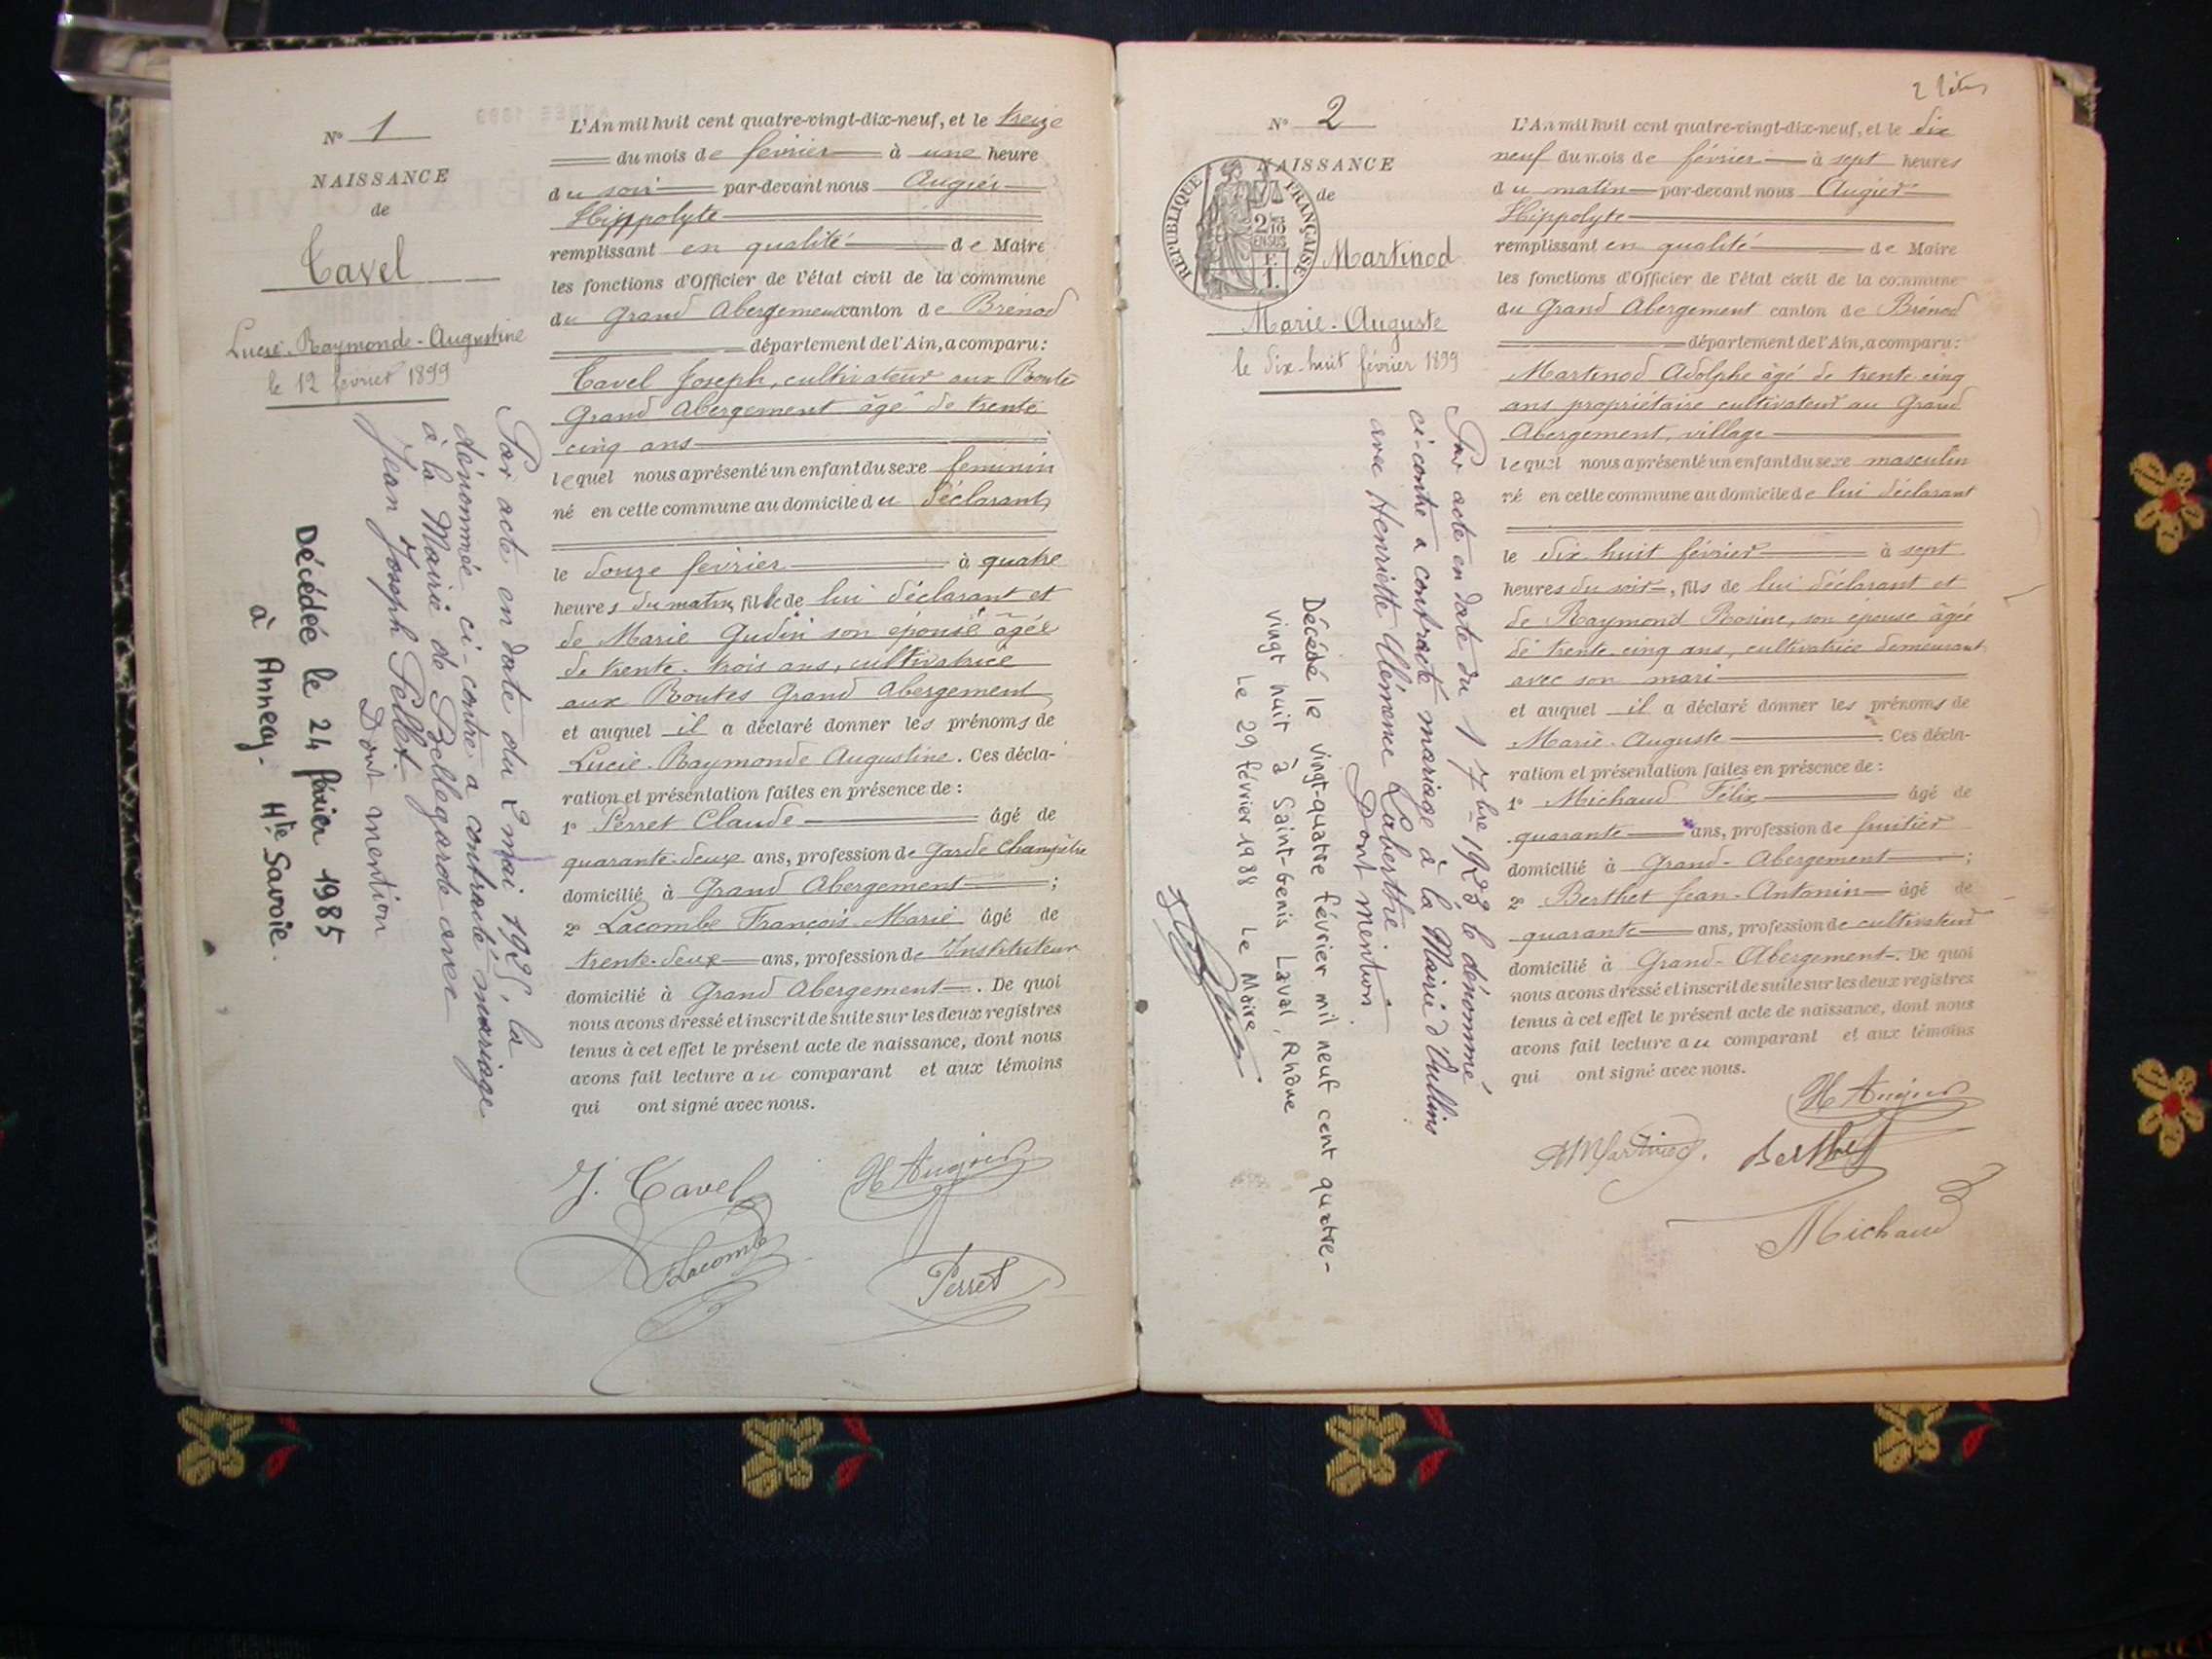 N° 1
NAISSANCE
de
Tavel
Lucie-Raymonde-Augustine
le 12 février 1899
Par acte en date du 2 mai 1925, la
dénommée ci-contre a contracté mariage
à la Mairie de Bellegarde avec
Jean Joseph Pellet
Dont mention
Décédée le 24 février 1985
à Annecy - Hte Savoie.
L'An mil huit cent quatre-vingt-dix-neuf, et le treize
du mois de février à une heure
du soir par-devant nous Augier
Hippolyte
remplissant en qualité de Maire
les fonctions d'Officier de l'état civil de la commune
du Grand Abergement canton de Brénod
département de l'Ain, a comparu:
Tavel Joseph, cultivateur aux Routes
Grand Abergement âgé de trente
cinq ans
lequel nous a présenté un enfant du sexe féminin
né en cette commune au domicile du déclarant
le douze février à quatre
heures du matin, fille de lui déclarant et
de Marie Gudin son épouse âgée
de trente-trois ans, cultivatrice
aux Routes Grand Abergement
et auquel il a déclaré donner les prénoms de
Lucie-Raymonde Augustine. Ces décla-
ration et présentation faites en présence de:
1° Perret Claude âgé de
quarante-deux ans, profession de Garde Champêtre
domicilié à Grand Abergement;
2° Lacombe François Marie âgé de
trente-deux ans, profession de Instituteur
domicilié à Grand Abergement. De quoi
nous avons dressé et inscrit de suite sur les deux registres
tenus à cet effet le présent acte de naissance, dont nous
avons fait lecture au comparant et aux témoins
qui ont signé avec nous.
J. Tavel
H Augier
Lacombe
Perret
2 fév
N° 2
NAISSANCE
de
REPUBLIQUE FRANÇAISE
Martinod
Marie-Auguste
le dix-huit février 1899
Par acte en date du 1 7bre 1923 le dénommé
ci-contre a contracté mariage à la Mairie d'Oullins
avec Henriette Clémence Laberthe
Dont mention
Décédé le vingt-quatre février mil neuf cent quatre-
vingt huit à Saint-Genis Laval, Rhône
Le 29 février 1988 Le Maire
L'An mil huit cent quatre-vingt-dix-neuf, et le dix
neuf du mois de février à sept heures
du matin par-devant nous Augier
Hippolyte
remplissant en qualité de Maire
les fonctions d'Officier de l'état civil de la commune
du Grand Abergement canton de Brénod
département de l'Ain, a comparu:
Martinod Adolphe âgé de trente-cinq
ans propriétaire cultivateur au Grand
Abergement, village
lequel nous a présenté un enfant du sexe masculin
né en cette commune au domicile de lui déclarant
le dix huit février à sept
heures du soir, fils de lui déclarant et
de Raymond Rosine, son épouse âgée
de trente-cinq ans, cultivatrice demeurant
avec son mari
et auquel il a déclaré donner les prénoms de
Marie-Auguste. Ces décla-
ration et présentation faites en présence de:
1° Michaud Félix âgé de
quarante ans, profession de fruitier
domicilié à Grand-Abergement;
2° Berthet Jean-Antonin âgé de
quarante ans, profession de cultivateur
domicilié à Grand-Abergement. De quoi
nous avons dressé et inscrit de suite sur les deux registres
tenus à cet effet le présent acte de naissance, dont nous
avons fait lecture au comparant et aux témoins
qui ont signé avec nous.
H Augier
AMartinod.
Berthet
Michaud